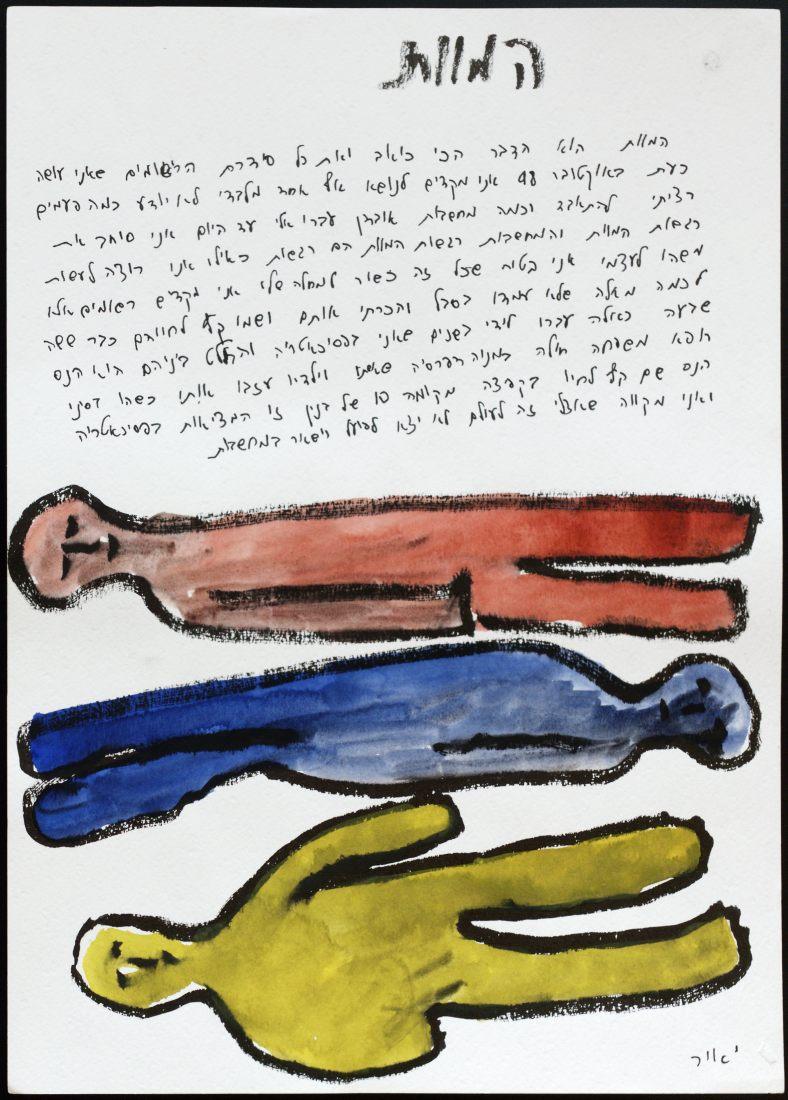 המוות
המוות הוא הדבר הכי כואב ואת כל סידרת הרישומים שאני עושה
כעת באוקטובר 98 אני מקדים לנושא אף אחד מלבדי לא יודע כמה פעמים
רציתי להתאבד וכמה מחשבות אובדן עברו אלי עד היום אני סוחב את
רגשות המוות והמחשבות רגשות המוות הם רגשות כאילו אני רוצה לעשות
משהו לעצמי אני בטוח שכל זה קשור למחלה שלי אני מקדיש רשומים אלו
לכמה מאלה שלא עמדו בסבל והכרתי אותם ושמו קץ לחייהם כבר ששה
שבעה כאלה עברו לידי בשנים שאני בפסיכאטריה והבולט ביניהם הוא הנס
רופא משפחה חולה במניה דפרסיה שאשתו וילדיו עזבו אותו כשהו בסיני
הנס שם קץ לחייו בקפצה מקומה 10 של בנין זו המציאות בפסיכאטריה
ואני מקווה שאצלי זה לעולם לא יצא לפועל וישאר במחשבות
יאיר